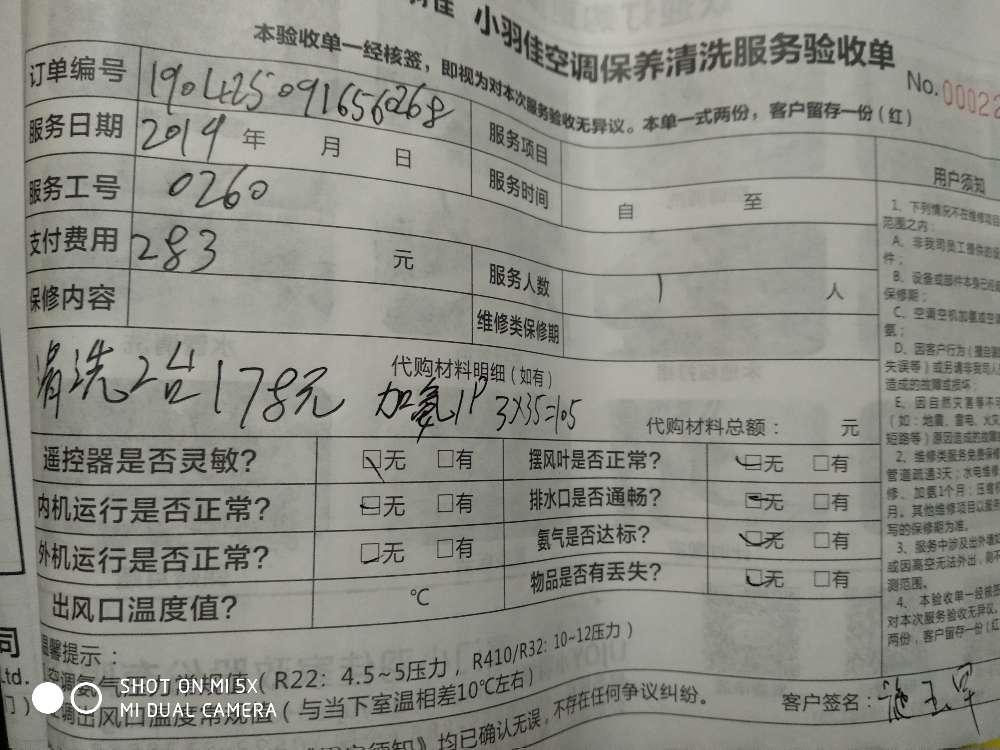 小羽佳空调保养清洗服务验收单
No.
本验收单一经核签，即视为对本次服务验收无异议。本单一式两份，客户留存一份（红）
订单编号 190425091656268
服务项目
服务日期 2019 年 月 日
服务时间 自 至
服务工号 0260
支付费用 283 元
服务人数 1 人
保修内容
维修类保修期
代购材料明细（如有）
清洗2台178元 加氨1P 3×35=105
代购材料总额： 元
遥控器是否灵敏？ □无 □有
摆风叶是否正常？ □无 □有
内机运行是否正常？ □无 □有
排水口是否通畅？ □无 □有
外机运行是否正常？ □无 □有
氨气是否达标？ □无 □有
出风口温度值？ ℃
物品是否有丢失？ □无 □有
用户须知
1、下列情况不在维修项目
范围之内：
A、非我司员工提供的
件；
B、设备或部件本身已经
保修期；
C、空调空机加氨或空调
氨；
D、因客户行为（擅自
失误等）或另请非我司人
造成的故障或损坏；
E、因自然灾害等不可
（如：地震、雷电、火灾
短路等）原因造成的故障
2、维修类服务免费保修
管道疏通3天；水电维修
修、加氨1个月；压缩机
月。其他维修项目以服务
写的保修期为准。
3、服务中涉及出外墙
或因高空无法外出，则不
测范围。
4、本验收单一经核签
对本次服务验收无异议。
两份，客户留存一份（红
温馨提示：
（R22：4.5~5压力，R410/R32: 10~12压力）
空调出风口温度常规值（与当下室温相差10℃左右）
均已确认无误，不存在任何争议纠纷。
客户签名：
司
Ltd.
SHOT ON MI 5X
MI DUAL CAMERA